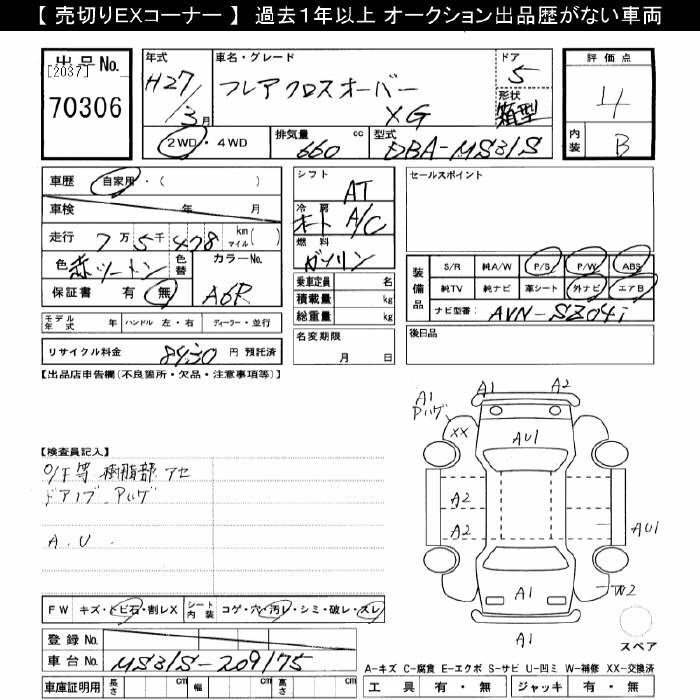 【 売切りEXコーナー 】 過去1年以上 オークション出品歴がない車両
出品No.
[2037]
70306
年式
H27/3月
車名・グレード
フレアクロスオーバー
XG
ドア
5
形状
箱型
2WD・4WD
排気量 660 cc
型式 DBA-MS31S
評価点
4
内装
B
車歴 自家用・( )
車検 年 月
走行 7万5千478 km マイル( )
色 赤ツートン
色替
カラーNo.
A6R
保証書 有 無
モデル年式 年 ハンドル 左・右 ディーラー・並行
リサイクル料金 8430 円 預託済
シフト
AT
冷房
オート A/C
燃料
ガソリン
乗車定員 名
積載量 kg
総重量 kg
名変期限
月 日
セールスポイント
装備品
S/R 純A/W P/S P/W ABS
純TV 純ナビ 革シート 外ナビ エアB
ナビ型番: AVN-SZ04i
後日品
【出品店申告欄(不良箇所・欠品・注意事項等)】
【検査員記入】
O/F等 樹脂部 アセ
ドアノブ Pハゲ
A.U.
A1
A2
A1
Pハゲ
XX
AU1
A2
A2
AU1
A1
W2
A1
スペア
FW キズ・トビ石・割レX
シート内装 コゲ・穴・汚レ・シミ・破レ・スレ
登録No.
車台No. MS31S-209175
車庫証明用 長さ cm 幅 cm 高さ cm
A-キズ C-腐食 E-エクボ S-サビ U-凹ミ W-補修 XX-交換済
工具 有・無 ジャッキ 有・無